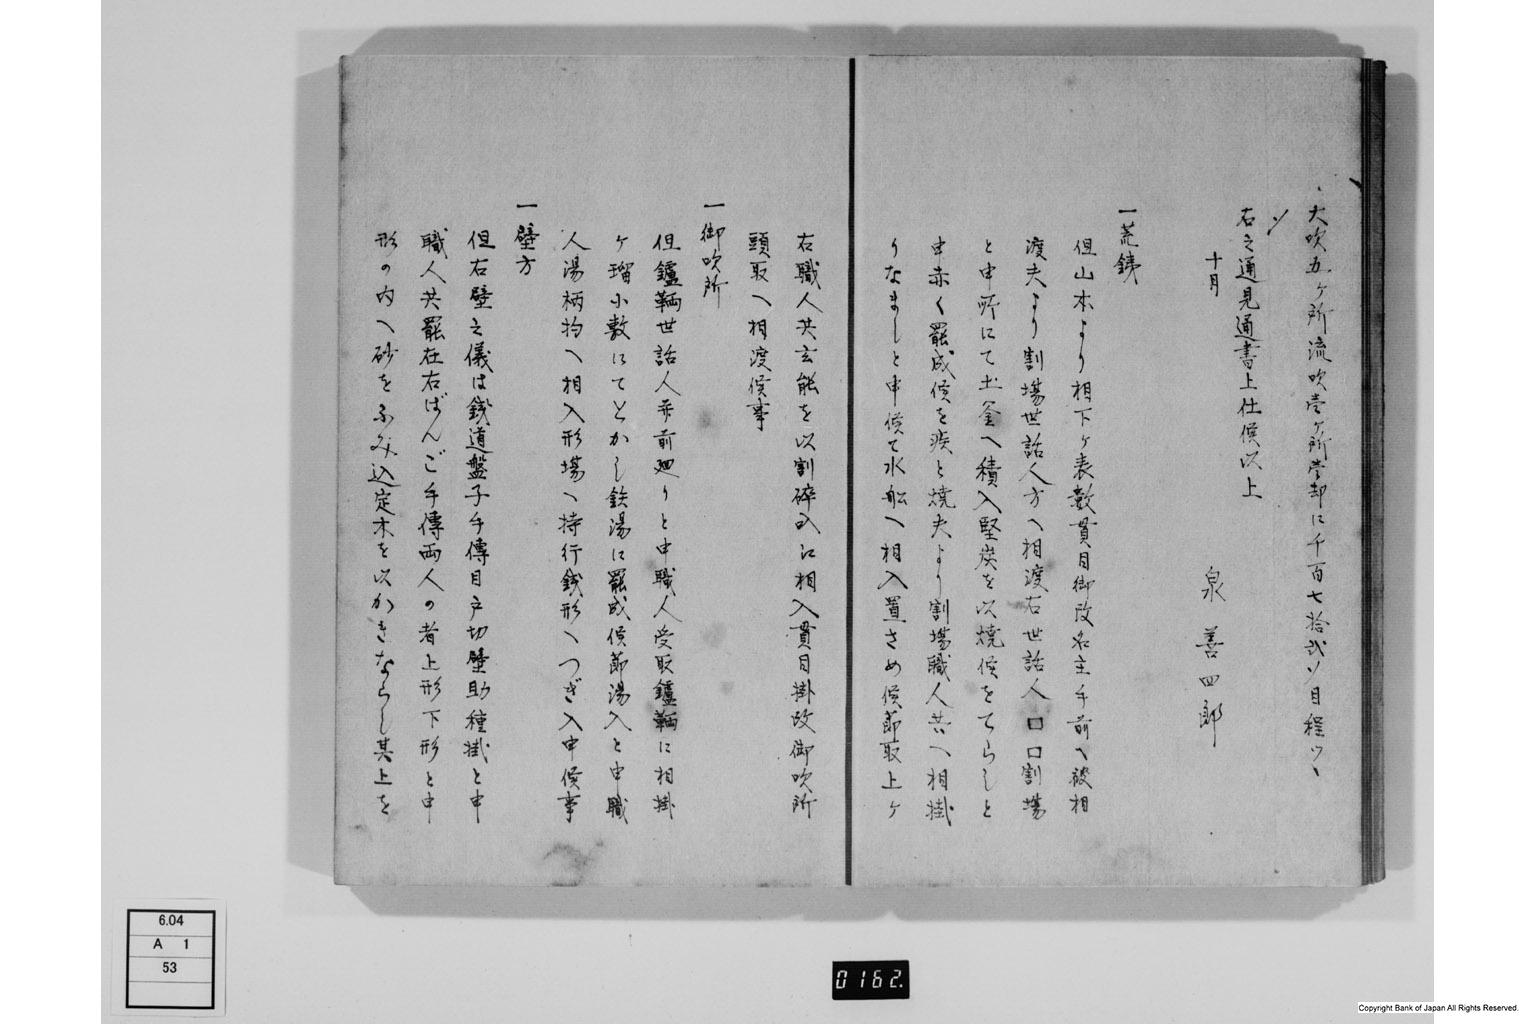 大吹五ケ所流吹壱ケ所壱却に千百七拾弐〆目程ツヽ
右之通見通書上仕候以上
十月
泉善四郎
一荒銕
但山本より相下ケ表数貫目御改名主手前へ被相
渡夫より割場世話人方へ相渡右世話人口口割場
と申所にて土釜へ積入堅炭を以焼候をてらしと
申赤く罷成候を疾と焼夫より割場職人共へ相掛
りなましと申候て水船へ相入置さめ候節取上ケ
右職人共玄能を以割砕叺に相入貫目掛改御吹所
頭取へ相渡候事
一御吹所
但鑪鞴世話人並前廻りと申職人受取鑪鞴に相掛
ケ瑠小敷にてとかし鉄湯に罷成候節湯入と申職
人湯柄杓へ相入形場へ持行銭形へつぎ入申候事
一壁方
但右壁之儀は銭道盤子手傳目戸切壁助種掛と申
職人共罷在右ばんご手傳両人の者上形下形と申
形の内へ砂をふみ込定木を以かきならし其上を
6.04
A 1
53
0162.
Copyright Bank of Japan All Rights Reserved.